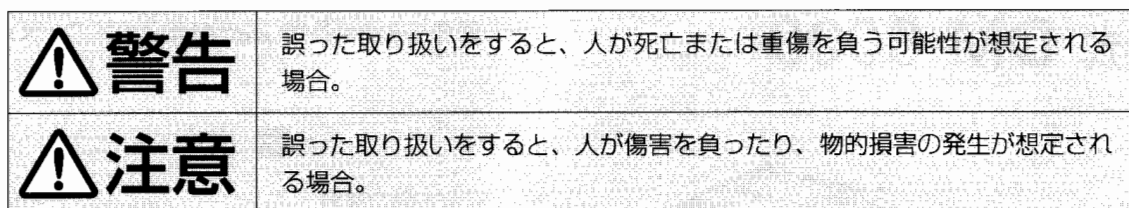 警告
誤った取り扱いをすると、人が死亡または重傷を負う可能性が想定される
場合。
注意
誤った取り扱いをすると、人が傷害を負ったり、物的損害の発生が想定され
る場合。